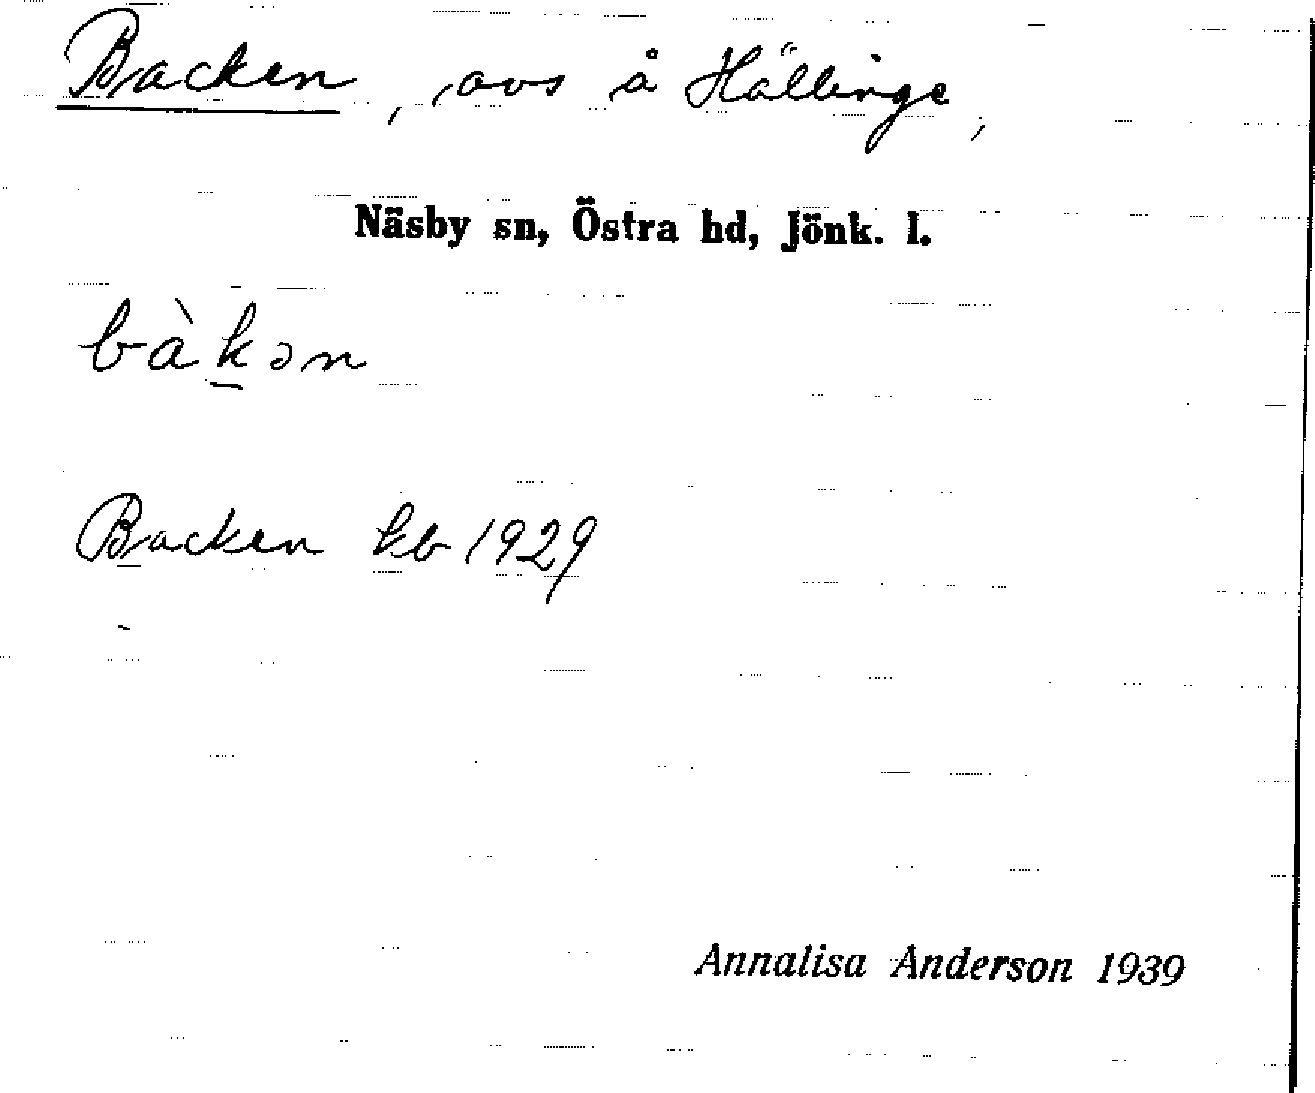 Backen, avs å Hällinge,
Näsby sn, Östra hd, Jönk. l.
bàk̲ən
Backen kb 1929
Annalisa Anderson 1939